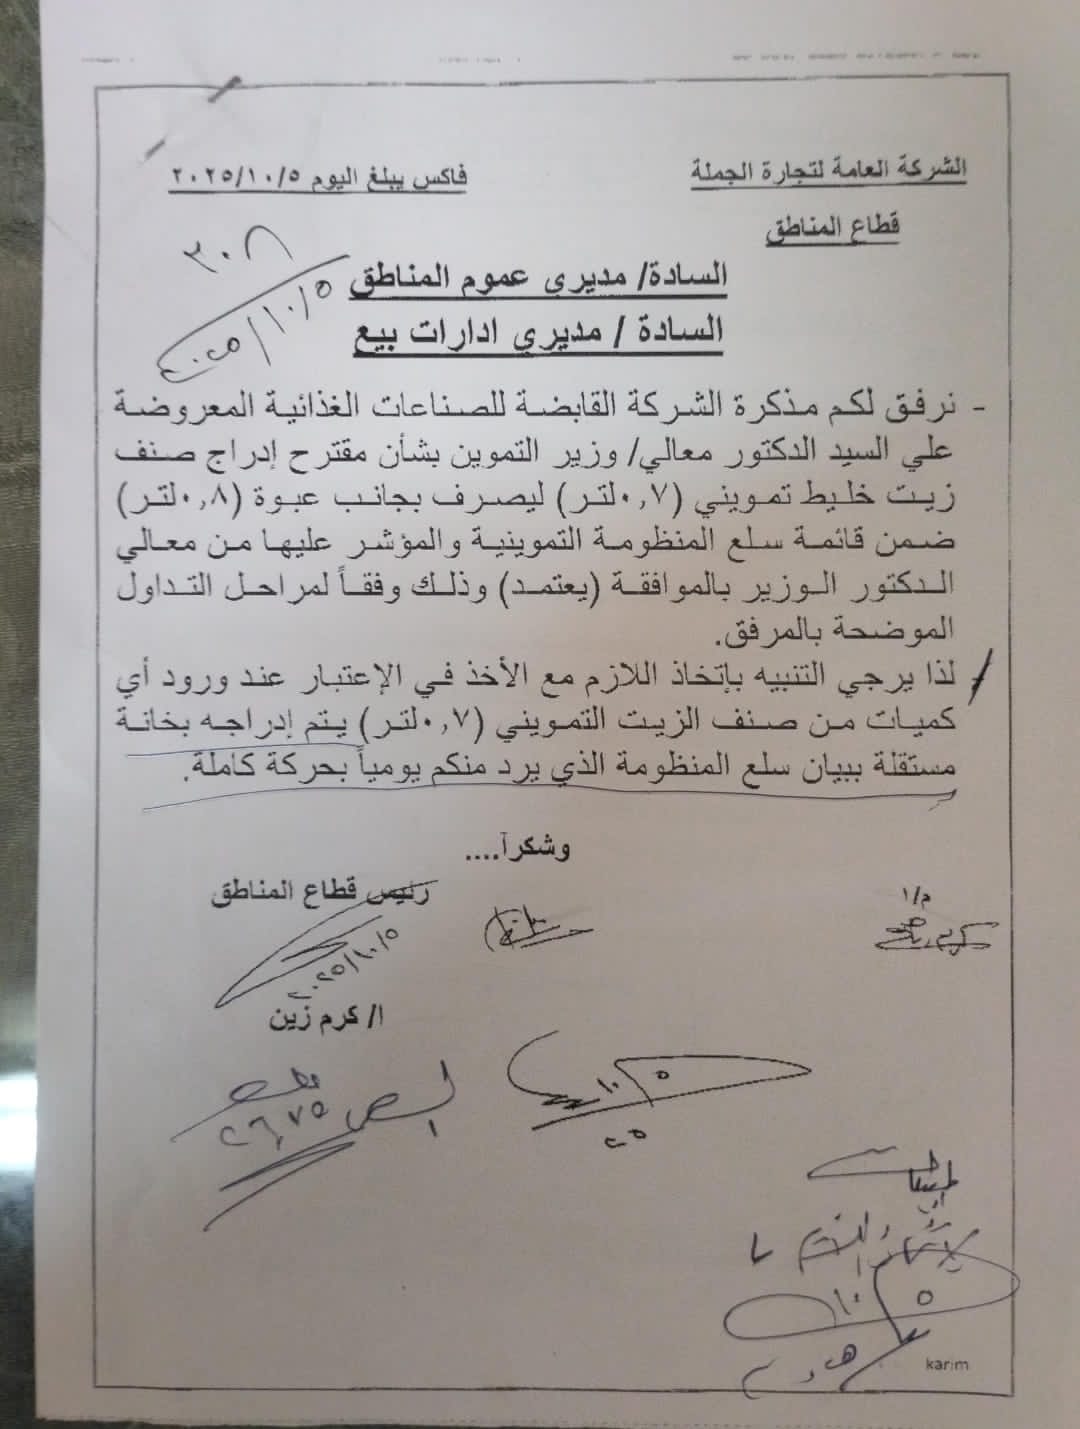 الشركة العامة لتجارة الجملة
فاكس يبلغ اليوم ٢٠٢٥/١٠/٥
قطاع المناطق
٣٠٨
٢٠٢٥/١٠/٥
السادة/ مديرى عموم المناطق
السادة / مديري ادارات بيع
- نرفق لكم مذكرة الشركة القابضة للصناعات الغذائية المعروضة
علي السيد الدكتور معالي/ وزير التموين بشأن مقترح إدراج صنف
زيت خليط تمويني (٠,٧لتر) ليصرف بجانب عبوة (٠,٨لتر)
ضمن قائمة سلع المنظومة التموينية والمؤشر عليها من معالي
الدكتور الوزير بالموافقة (يعتمد) وذلك وفقاً لمراحل التداول
الموضحة بالمرفق.
- لذا يرجي التنبيه بإتخاذ اللازم مع الأخذ في الإعتبار عند ورود أي
كميات من صنف الزيت التمويني (٠,٧لتر) يتم إدراجه بخانة
مستقلة ببيان سلع المنظومة الذي يرد منكم يومياً بحركة كاملة.
وشكرآ....
رئيس قطاع المناطق
م/ا
٢٠٢٥/١٠/٥
ا/ كرم زين
١٠/٥
٢٥
٢٦,٧٥
١٠/٥
karim